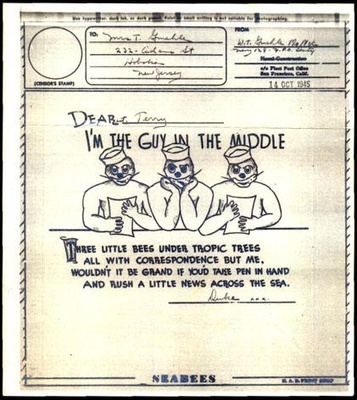 Use typewriter, dark ink, or dark pencil. Faint or small writing is not suitable for photographing.
TO:
FROM
Mrs T.
232 Adams St
Hoboken
New Jersey
c/o Fleet Post Office
San Francisco, Calif.
(CENSOR'S STAMP)
14 OCT 1945
DEAREST Terry
I'M THE GUY IN THE MIDDLE
THREE LITTLE BEES UNDER TROPIC TREES
ALL WITH CORRESPONDENCE BUT ME.
WOULDN'T IT BE GRAND IF YOU'D TAKE PEN IN HAND
AND RUSH A LITTLE NEWS ACROSS THE SEA.
xxx
SEABEES
PRINT SHOP